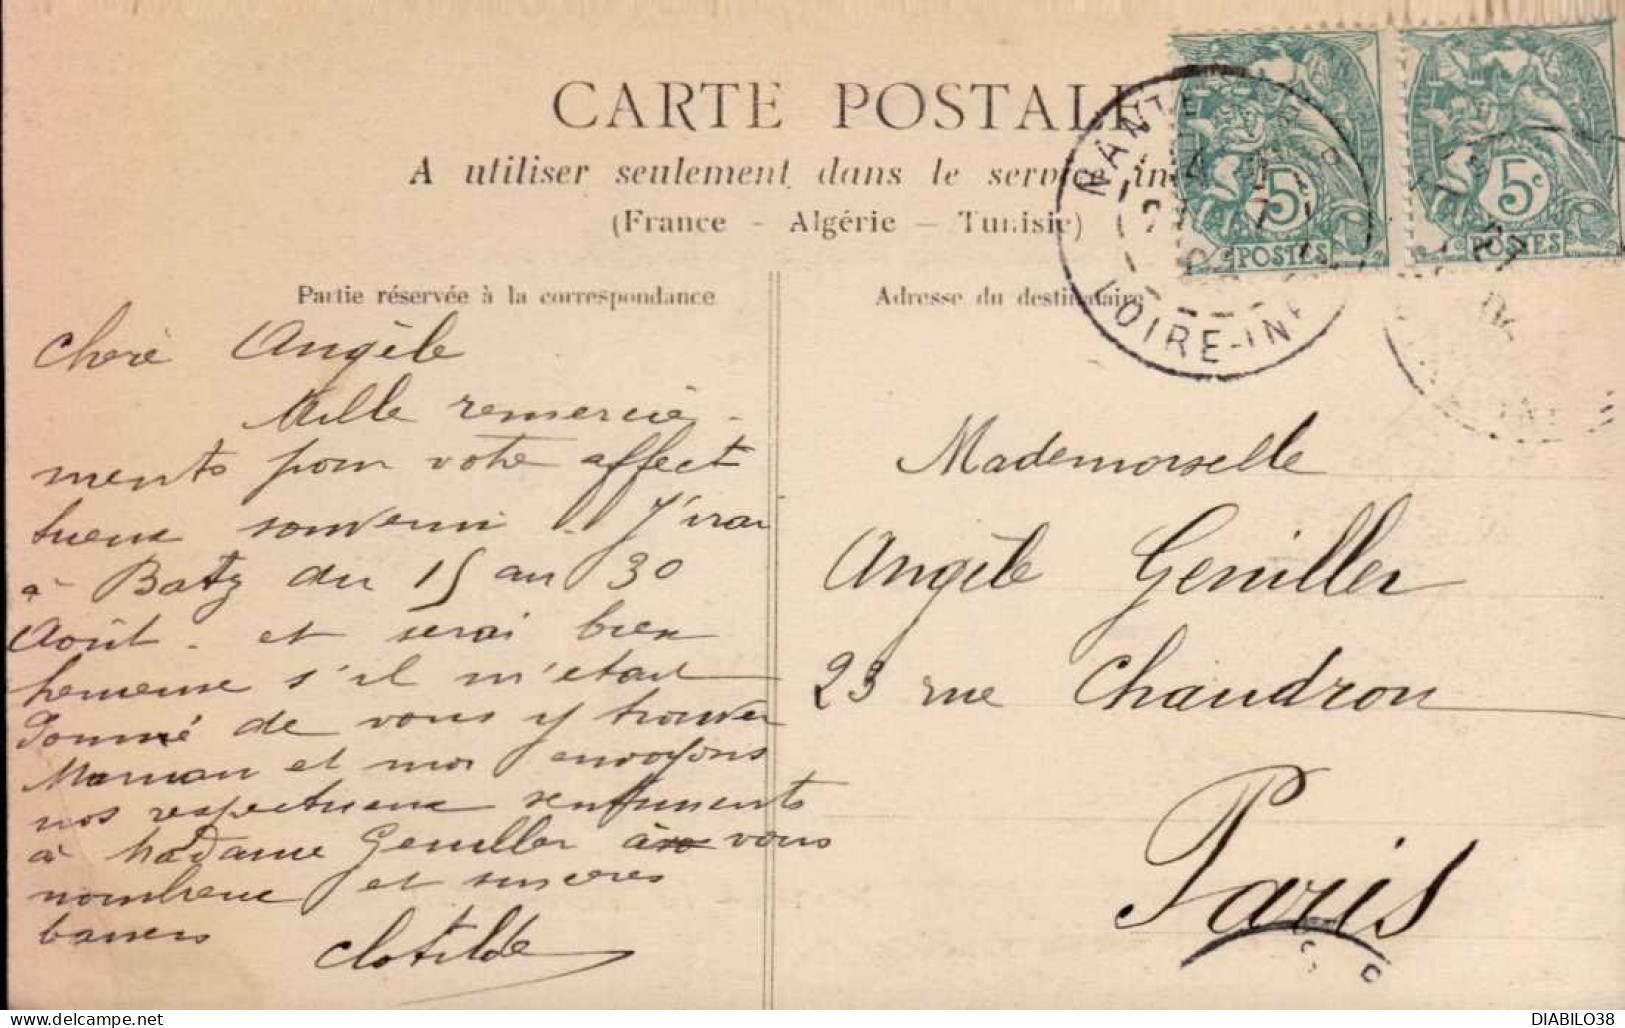 CARTE POSTALE
A utiliser seulement dans le service in
(France - Algérie - Tunisie)
Partie réservée à la correspondance
Adresse du destinataire
5c
POSTES
5c
POSTES
NANTES
LOIRE-INF
Chère Angèle
Mille remerciè-
ments pour votre affect
tueux souvenir. J'irai
à Batz du 15 au 30
Août - et serai bien
heureuse s'il m'était
donné de vous y trouver
Maman et moi envoyons
nos respectueux sentiments
à Madame Geniller à vous
nombreux et sincères
baisers
Clotilde
Mademoiselle
Angèle Geniller
23 rue Chaudron
Paris
delcampe.net
DIABILO38